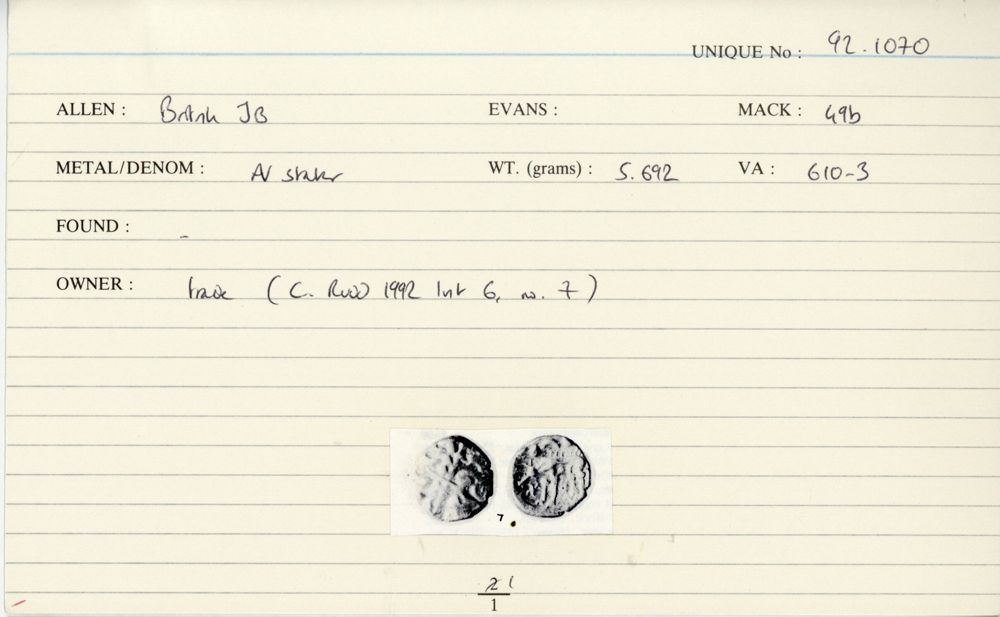 UNIQUE No : 92.1070
ALLEN : British JB EVANS : MACK : 49b
METAL/DENOM : AV stater WT. (grams) : 5.692 VA : 610-3
FOUND : -
OWNER : trade (C. Rudd 1992 list 6, no. 7)
7
2 1
1